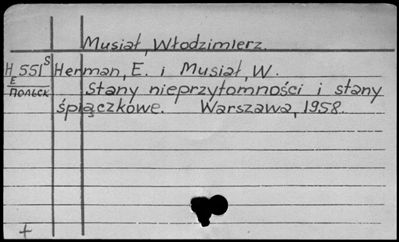 Musiał, Włodzimierz.
H 551 S Herman, E. i Musiał, W.
E
Польск Stany nieprzytomności i stany
śpiączkowe. Warszawa, 1958.